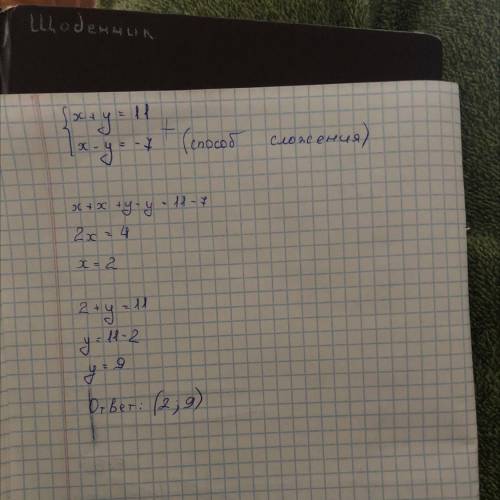 Щоденник
x+y=11
x-y=-7 + (способ сложения)
x+x+y-y=11-7
2x=4
x=2
2+y=11
y=11-2
y=9
Ответ: (2;9)